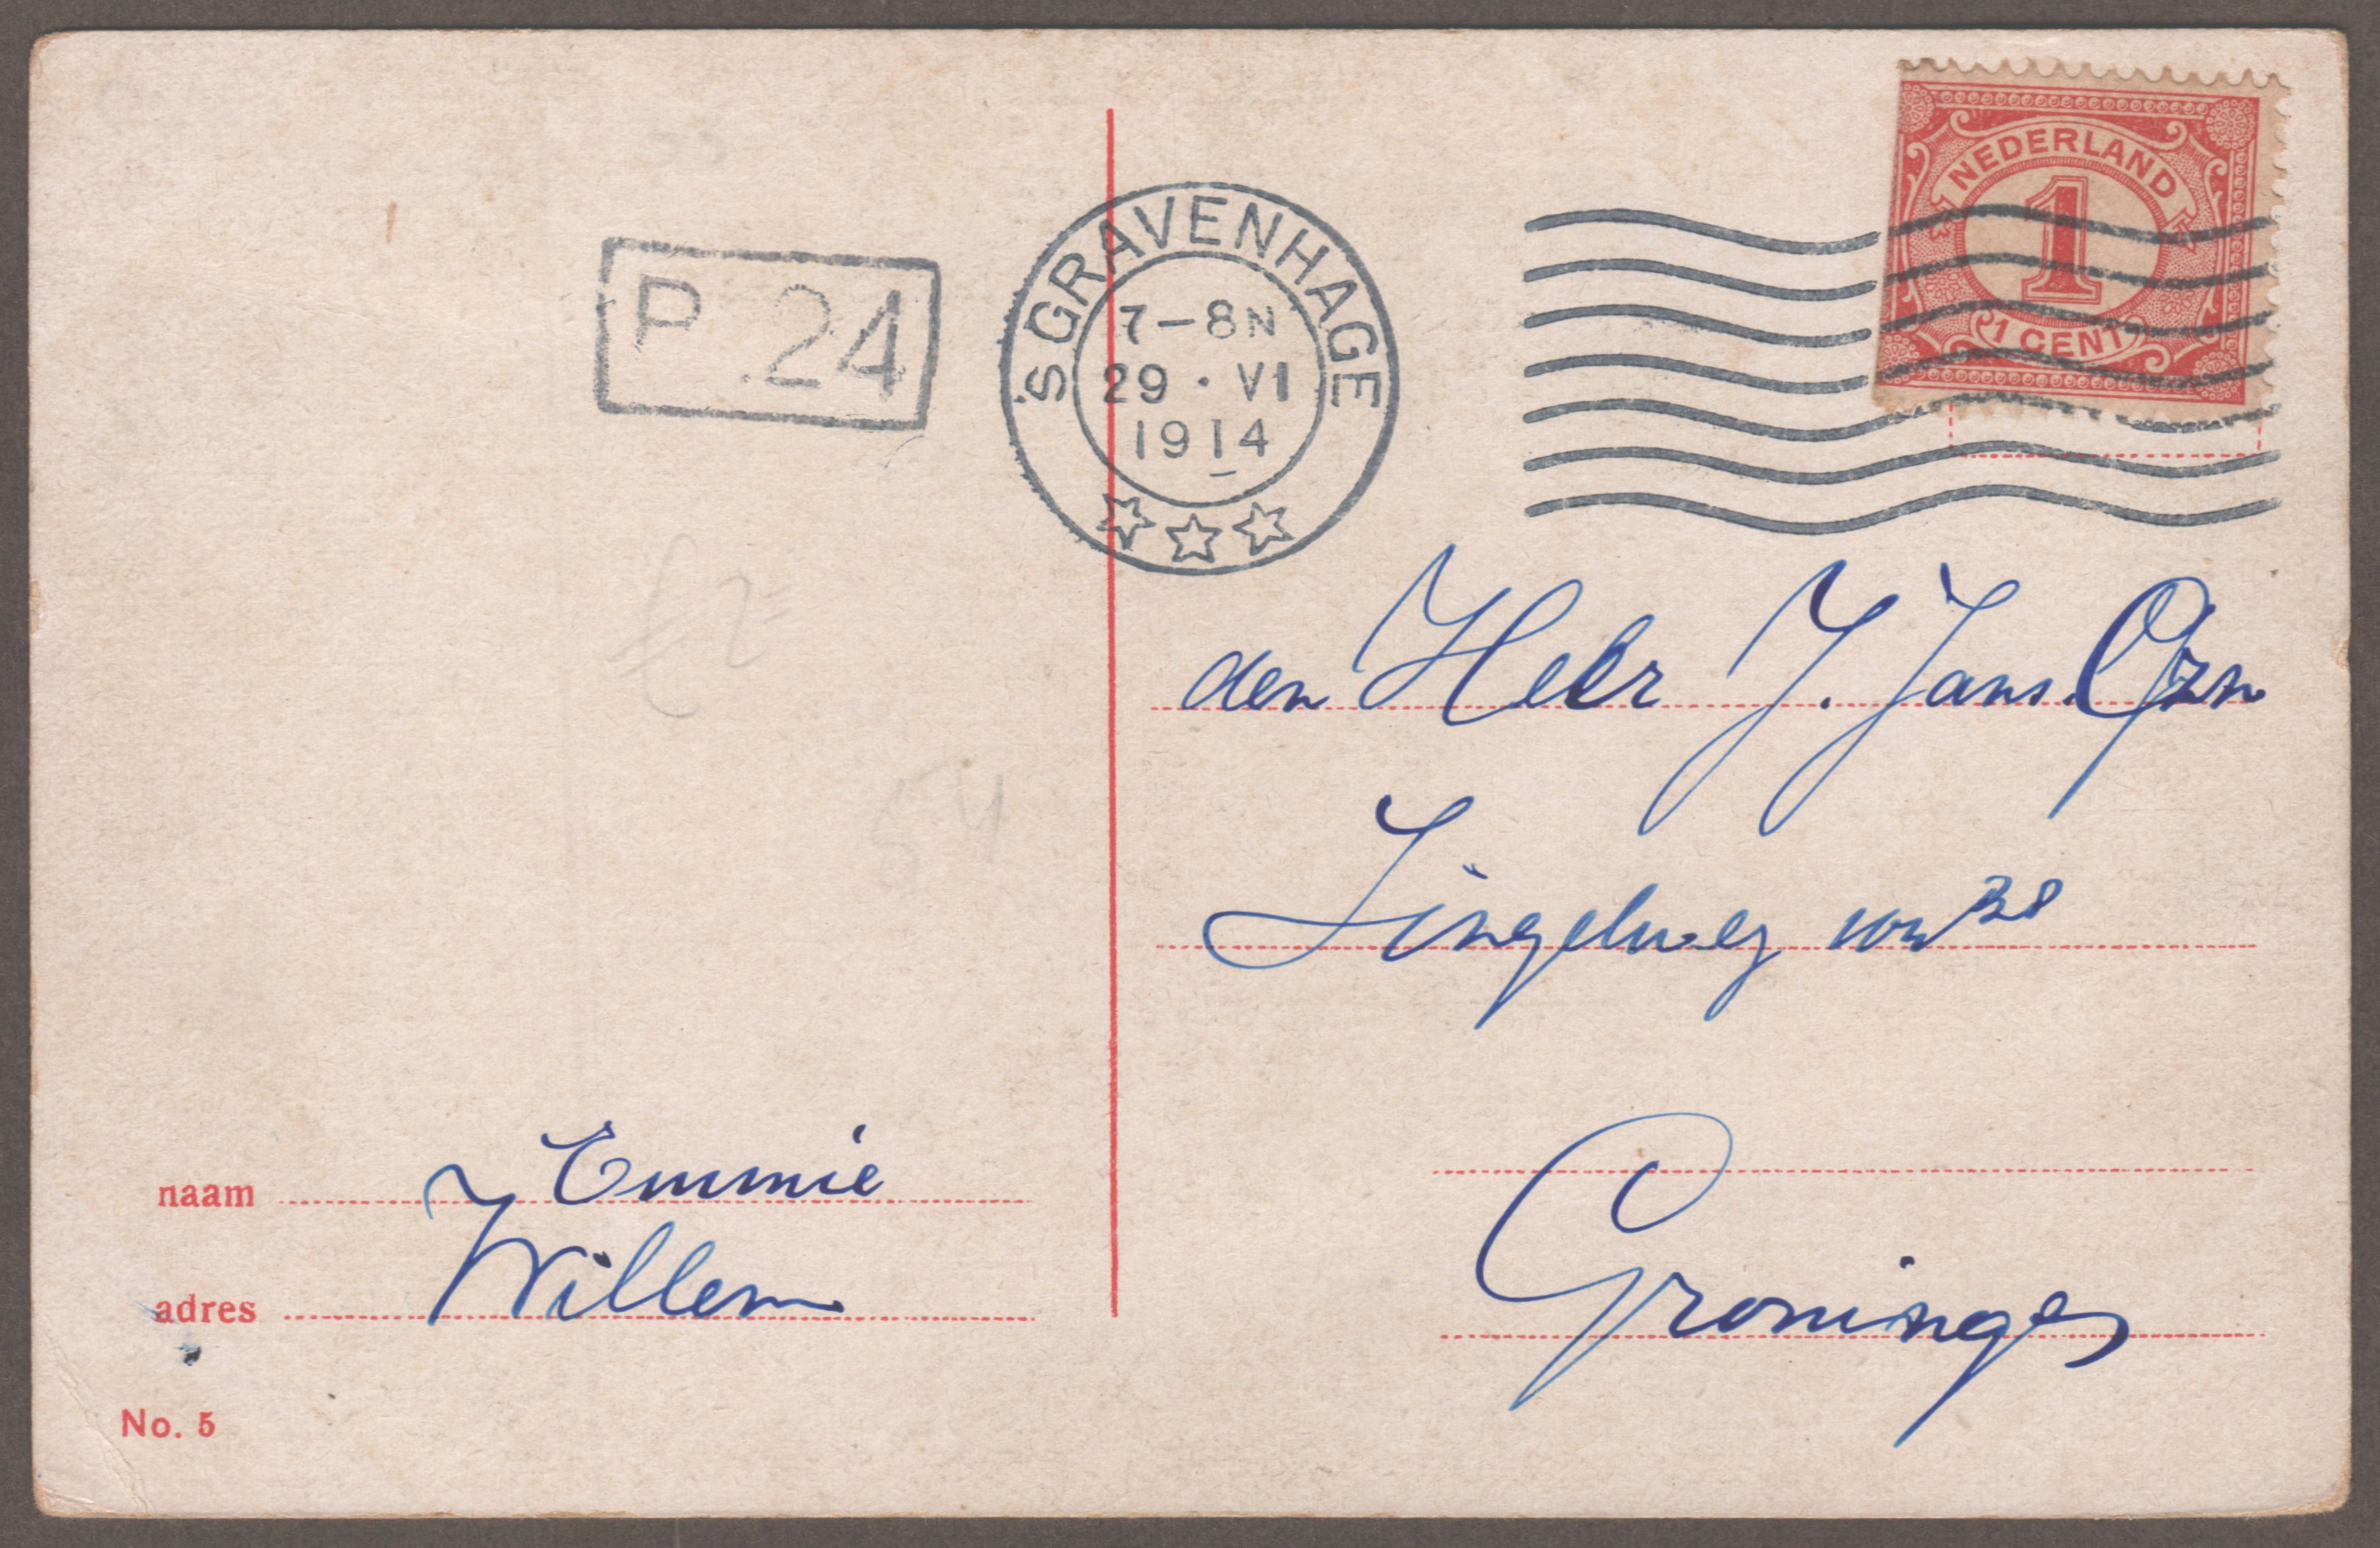 P. 24
'S GRAVENHAGE
7-8N
29 · VI
1914
NEDERLAND
1
1 CENT
den Heer J. Jans. Gzn
Singelweg 38
Groningen
naam Emmie
adres Willem
No. 5
54